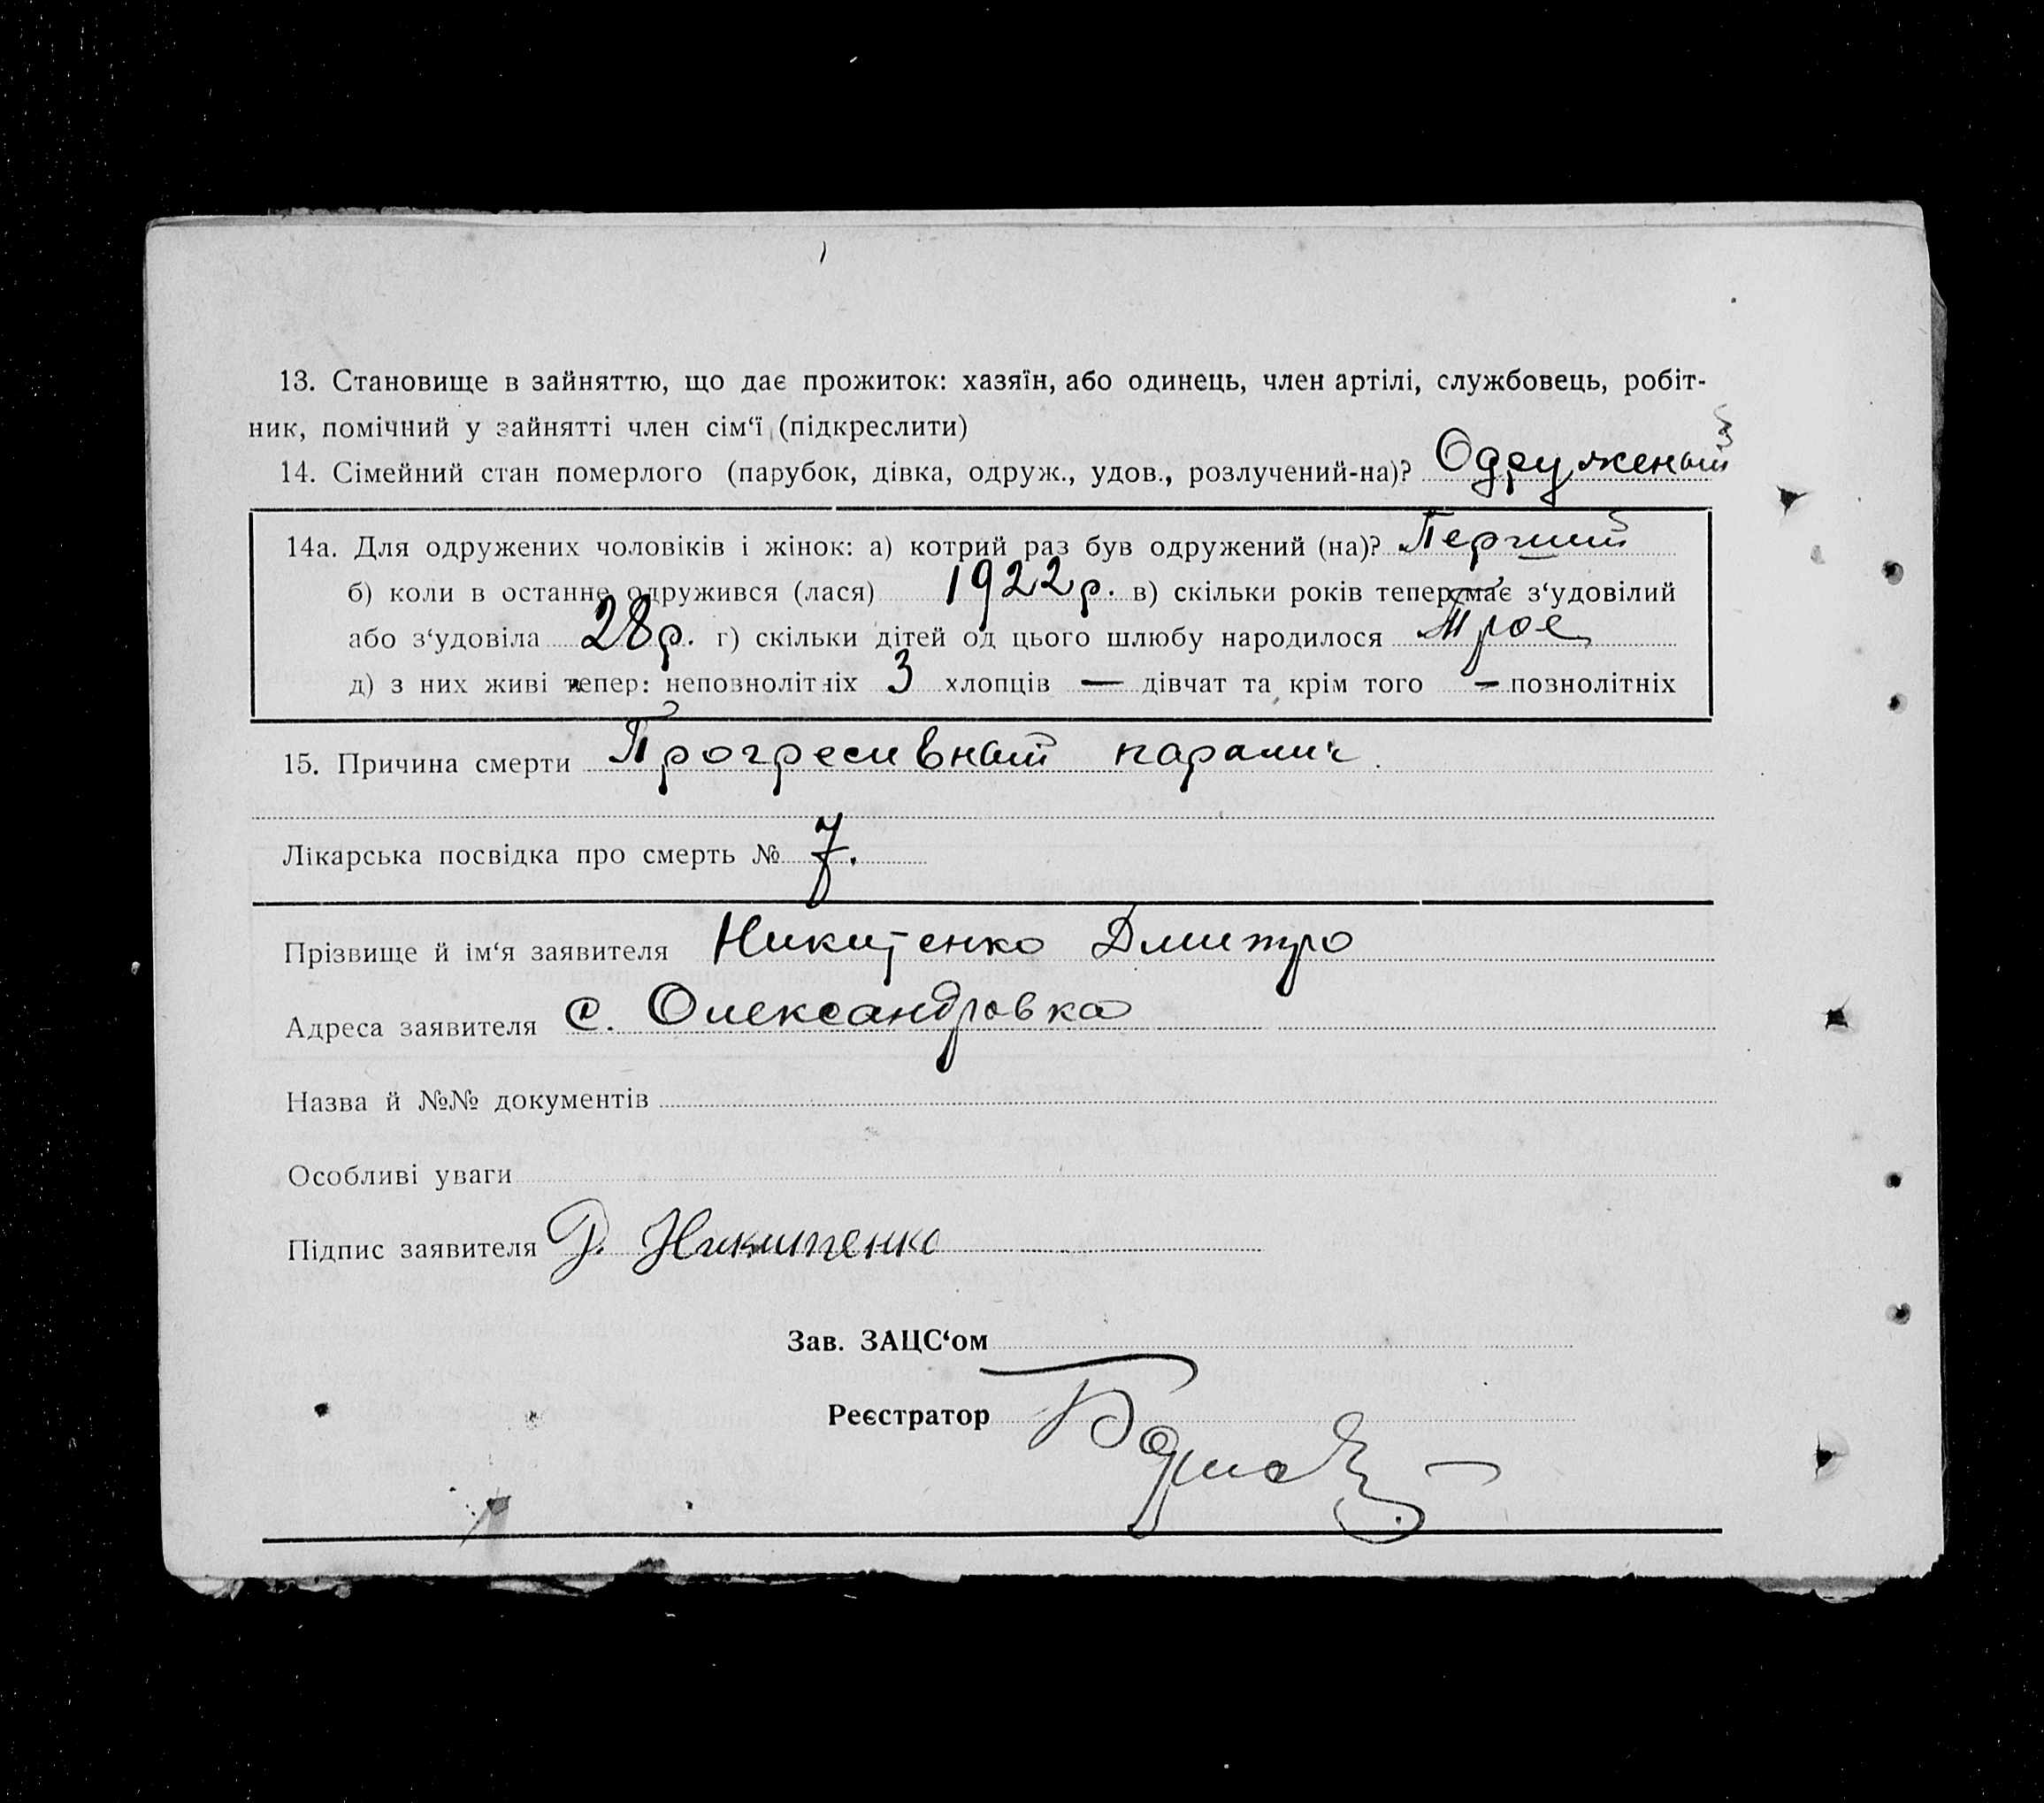 13. Становище в зайняттю, що дає прожиток: хазяїн, або одинець, член артілі, службовець, робіт-
ник, помічний у зайнятті член сім‘ї (підкреслити)
14. Сімейний стан померлого (парубок, дівка, одруж., удов., розлучений-на)? Одружений
14а. Для одружених чоловіків і жінок: а) котрий раз був одружений (на)? Перший
б) коли в останнє одружився (лася) 1922 р. в) скільки років тепер має з‘удовілий
або з‘удовіла 28 р. г) скільки дітей од цього шлюбу народилося Троє
д) з них живі тепер: неповнолітніх 3 хлопців — дівчат та крім того — повнолітніх
15. Причина смерти Прогресивний параліч.
Лікарська посвідка про смерть № 7.
Прізвище й ім‘я заявителя Никитенко Дмитро
Адреса заявителя с. Олександровка
Назва й №№ документів
Особливі уваги
Підпис заявителя Д. Никитенко
Зав. ЗАЦС‘ом
Реєстратор